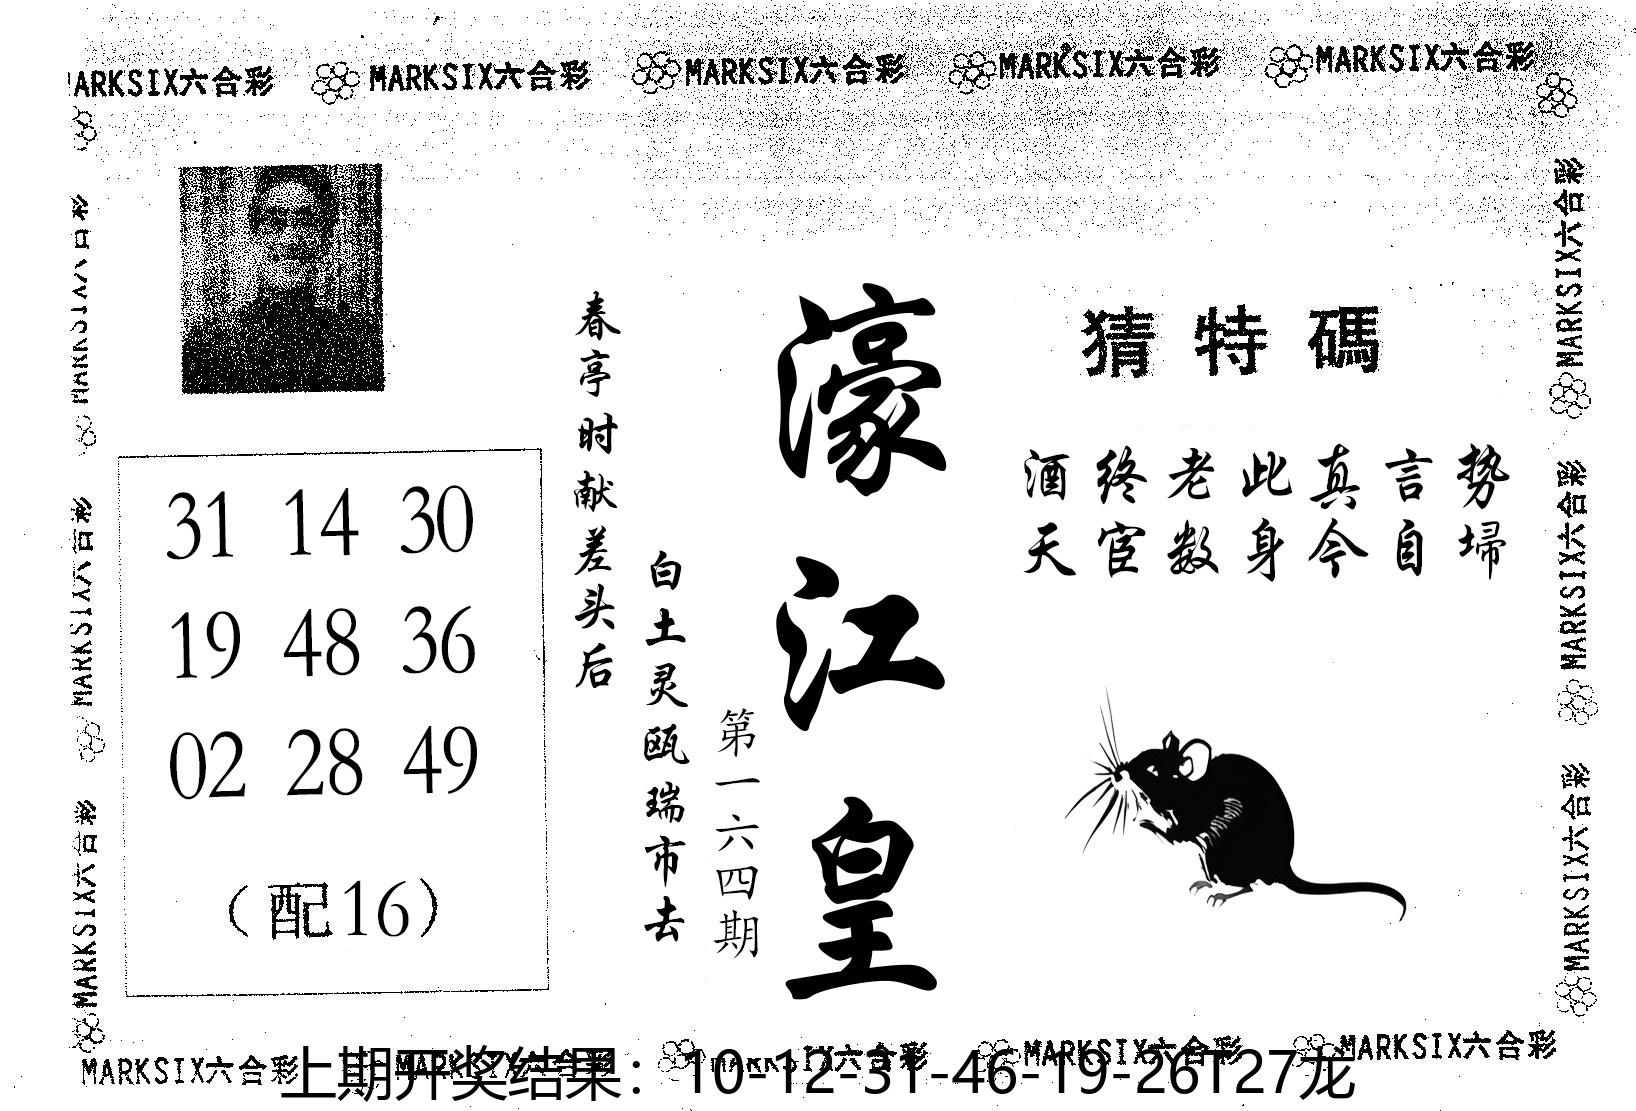 MARKSIX六合彩 MARKSIX六合彩 MARKSIX六合彩 MARKSIX六合彩 MARKSIX六合彩
猜特碼
酒终老此真言势
天宦数身今自埽
濠江皇
第一六四期
白土灵瓯瑞市去
春亭时献差头后
31 14 30
19 48 36
02 28 49
（配16）
MARKSIX六合彩
MARKSIX六合彩
MARKSIX六合彩
MARKSIX六合彩
MARKSIX六合彩
MARKSIX六合彩
MARKSIX六合彩 MARKSIX六合彩 MARKSIX六合彩 MARKSIX六合彩 MARKSIX六合彩
上期开奖结果：10-12-31-46-19-26T27龙